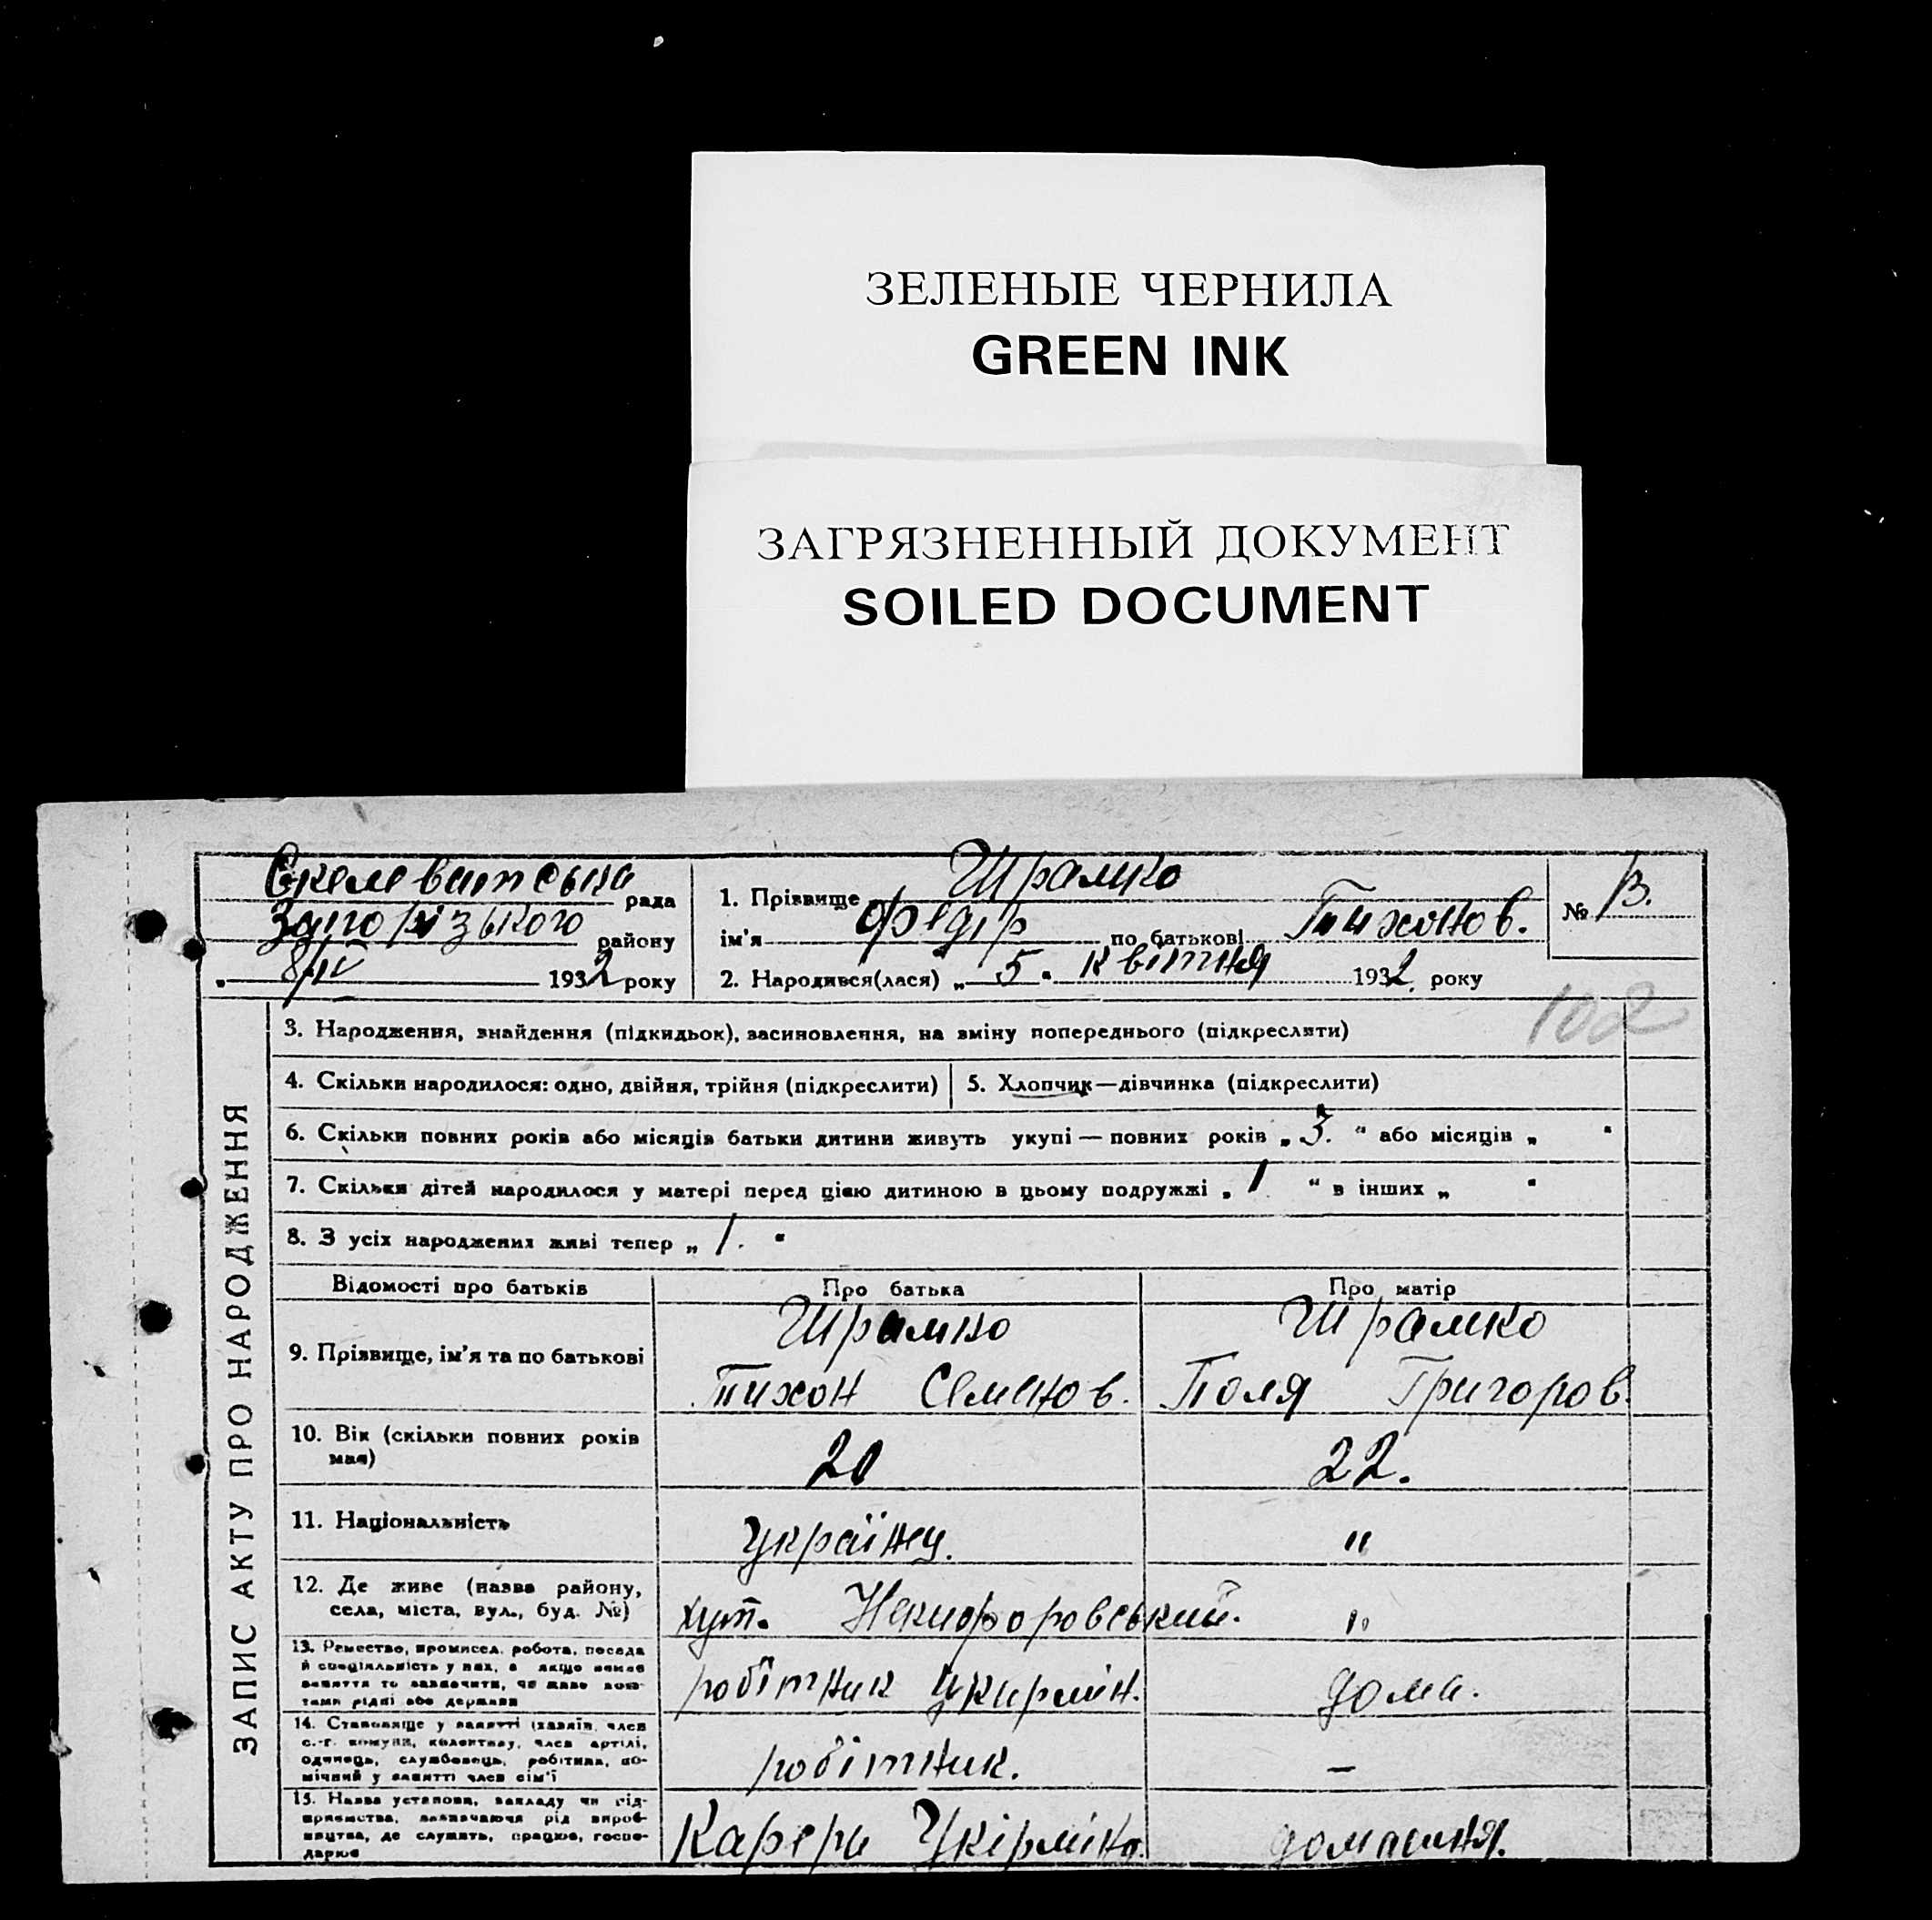 ЗЕЛЕНЫЕ ЧЕРНИЛА
GREEN INK
ЗАГРЯЗНЕННЫЙ ДОКУМЕНТ
SOILED DOCUMENT
Скелеватська рада
Запорізького району
„ 8/IV 1932 року
1. Прізвище Шрамко
ім'я Федір по батькові Тихонов.
2. Народився(лася) „ 5 " квітня 1932 року
№ 13.
102
ЗАПИС АКТУ ПРО НАРОДЖЕННЯ
3. Народження, знайдення (підкидьок), засиновлення, на зміну попереднього (підкреслити)
4. Скільки народилося: одно, двійня, трійня (підкреслити)
5. Хлопчик—дівчинка (підкреслити)
6. Скільки повних років або місяців батьки дитини живуть укупі — повних років „ 3. “ або місяців „ "
7. Скільки дітей народилося у матері перед цією дитиною в цьому подружжі „ 1 “ в інших „ "
8. З усіх народжених живі тепер „ 1. "
Відомості про батьків Про батька Про матір
9. Прізвище, ім'я та по батькові
Шрамко Шрамко
Тихон Семенов. Поля Григоров.
10. Вік (скільки повних років має)
20 22.
11. Національність українц. "
12. Де живе (назва району,
села, міста, вул., буд. №) хут. "
13. Ремество, промисел, робота, посада
й спеціяльність у них, а якщо немає
заняття то зазначити, чи живе кош-
тами рідні або держави
робітник дома.
14. Становище у занятті (хазяїн, член
с.-г. комуни, колективу, член артілі,
одинець, службовець, робітник, по-
мічний у занятті член сім'ї
робітник. —
15. Назва установи, закладу чи під-
приємства, зазначаючи рід вироб-
ництва, де служить, працює, госпо-
дарює
Карєри домашня.